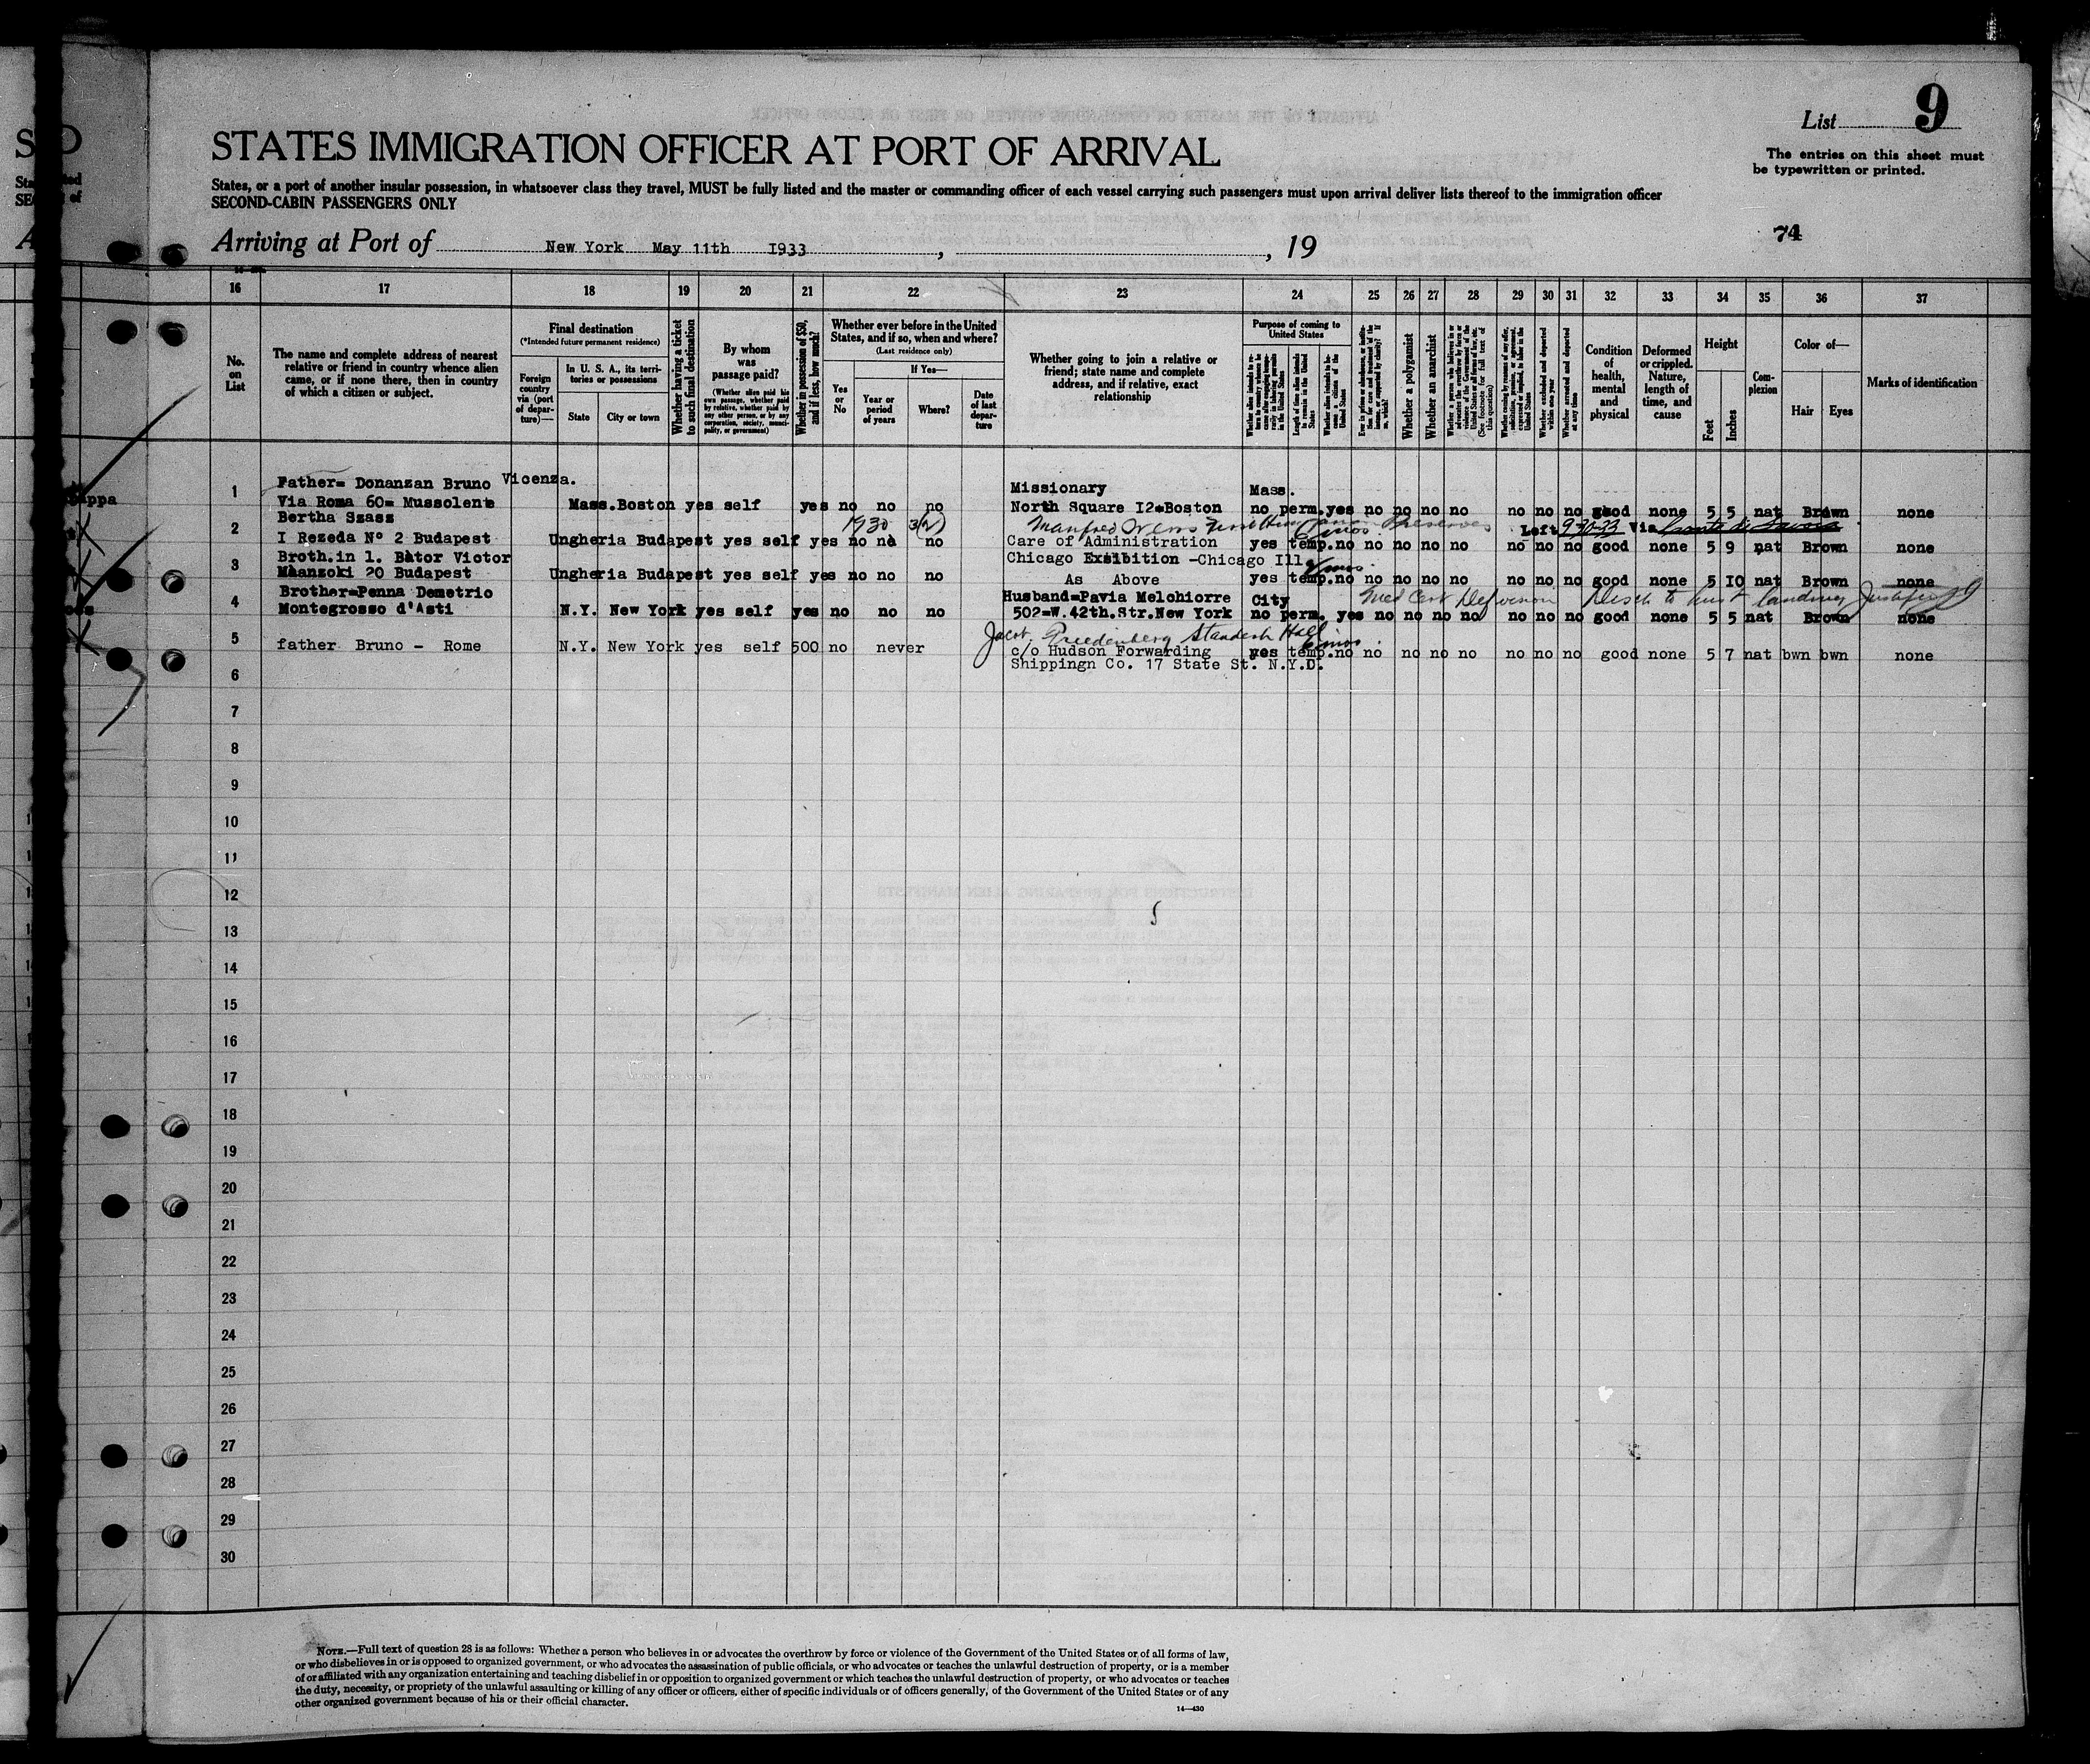 List 9
The entries on this sheet must
be typewritten or printed.
STATES IMMIGRATION OFFICER AT PORT OF ARRIVAL
States, or a port of another insular possession, in whatsoever class they travel, MUST be fully listed and the master or commanding officer of each vessel carrying such passengers must upon arrival deliver lists thereof to the immigration officer
SECOND-CABIN PASSENGERS ONLY
Arriving at Port of New York May 11th I933 , , 19
74
16 17 18 19 20 21 22 23 24 25 26 27 28 29 30 31 32 33 34 35 36 37
No.
on
List
The name and complete address of nearest
relative or friend in country whence alien
came, or if none there, then in country
of which a citizen or subject.
Final destination
(*Intended future permanent residence)
Foreign
country
via (port
of depar-
ture)—
In U. S. A., its terri-
tories or possessions
State
City or town
Whether having a ticket
to such final destination
By whom
was
passage paid?
(Whether alien paid his
own passage, whether paid
by relative, whether paid by
any other person, or by any
corporation, society, munici-
pality, or government)
Whether in possession of $50,
and if less, how much?
Whether ever before in the United
States, and if so, when and where?
(Last residence only)
Yes
or
No
If Yes—
Year or
period
of years
Where?
Date
of last
depar-
ture
Whether going to join a relative or
friend; state name and complete
address, and if relative, exact
relationship
Purpose of coming to
United States
Length of time alien intends
to remain in the United
States
Whether alien intends to be-
come a citizen of the
United States
Whether a polygamist
Whether an anarchist
(See footnote for full text of
this question)
Whether excluded and deported
within one year
Whether arrested and deported
at any time
Condition
of
health,
mental
and
physical
Deformed
or crippled.
Nature,
length of
time, and
cause
Height
Feet
Inches
Com-
plexion
Color of—
Hair
Eyes
Marks of identification
1 Father= Donanzan Bruno Vicenza. Missionary Mass.
Via Roma 60= Mussolente Mass.Boston yes self yes no no no North Square I2=Boston no perm.yes no no no no no no no good none 5 5 nat Brown none
2 Bertha Szasz 1930 Left 9-30-33 Via Conte di Savoia
I Rezeda Nº 2 Budapest Ungheria Budapest yes self yes no no no Care of Administration yes temp.no no no no no no no no good none 5 9 nat Brown none
3 Broth.in l. Bàtor Victor Chicago Exhibition -Chicago Ill.
20 Budapest Ungheria Budapest yes self yes no no no As Above yes temp.no no no no no no no no good none 5 IO nat Brown none
4 Brother=Penna Demetrio Husband=Pavia Melchiorre City Med Cert
Montegrosso d'Asti N.Y. New York yes self yes no no no 502=W.42th.Str.New York no perm. yes no no no no no no no good none 5 5 nat Brown none
5 Jacob Standish Hall
father Bruno - Rome N.Y. New York yes self 500 no never c/o Hudson Forwarding yes temp.no no no no no no no no good none 5 7 nat bwn bwn none
Shippingn Co. 17 State St. N.Y.D.
6
7
8
9
10
11
12
13
14
15
16
17
18
19
20
21
22
23
24
25
26
27
28
29
30
NOTE.—Full text of question 28 is as follows: Whether a person who believes in or advocates the overthrow by force or violence of the Government of the United States or of all forms of law,
or who disbelieves in or is opposed to organized government, or who advocates the assassination of public officials, or who advocates or teaches the unlawful destruction of property, or is a member
of or affiliated with any organization entertaining and teaching disbelief in or opposition to organized government or which teaches the unlawful destruction of property, or who advocates or teaches
the duty, necessity, or propriety of the unlawful assaulting or killing of any officer or officers, either of specific individuals or of officers generally, of the Government of the United States or of any
other organized government because of his or their official character.
14—430